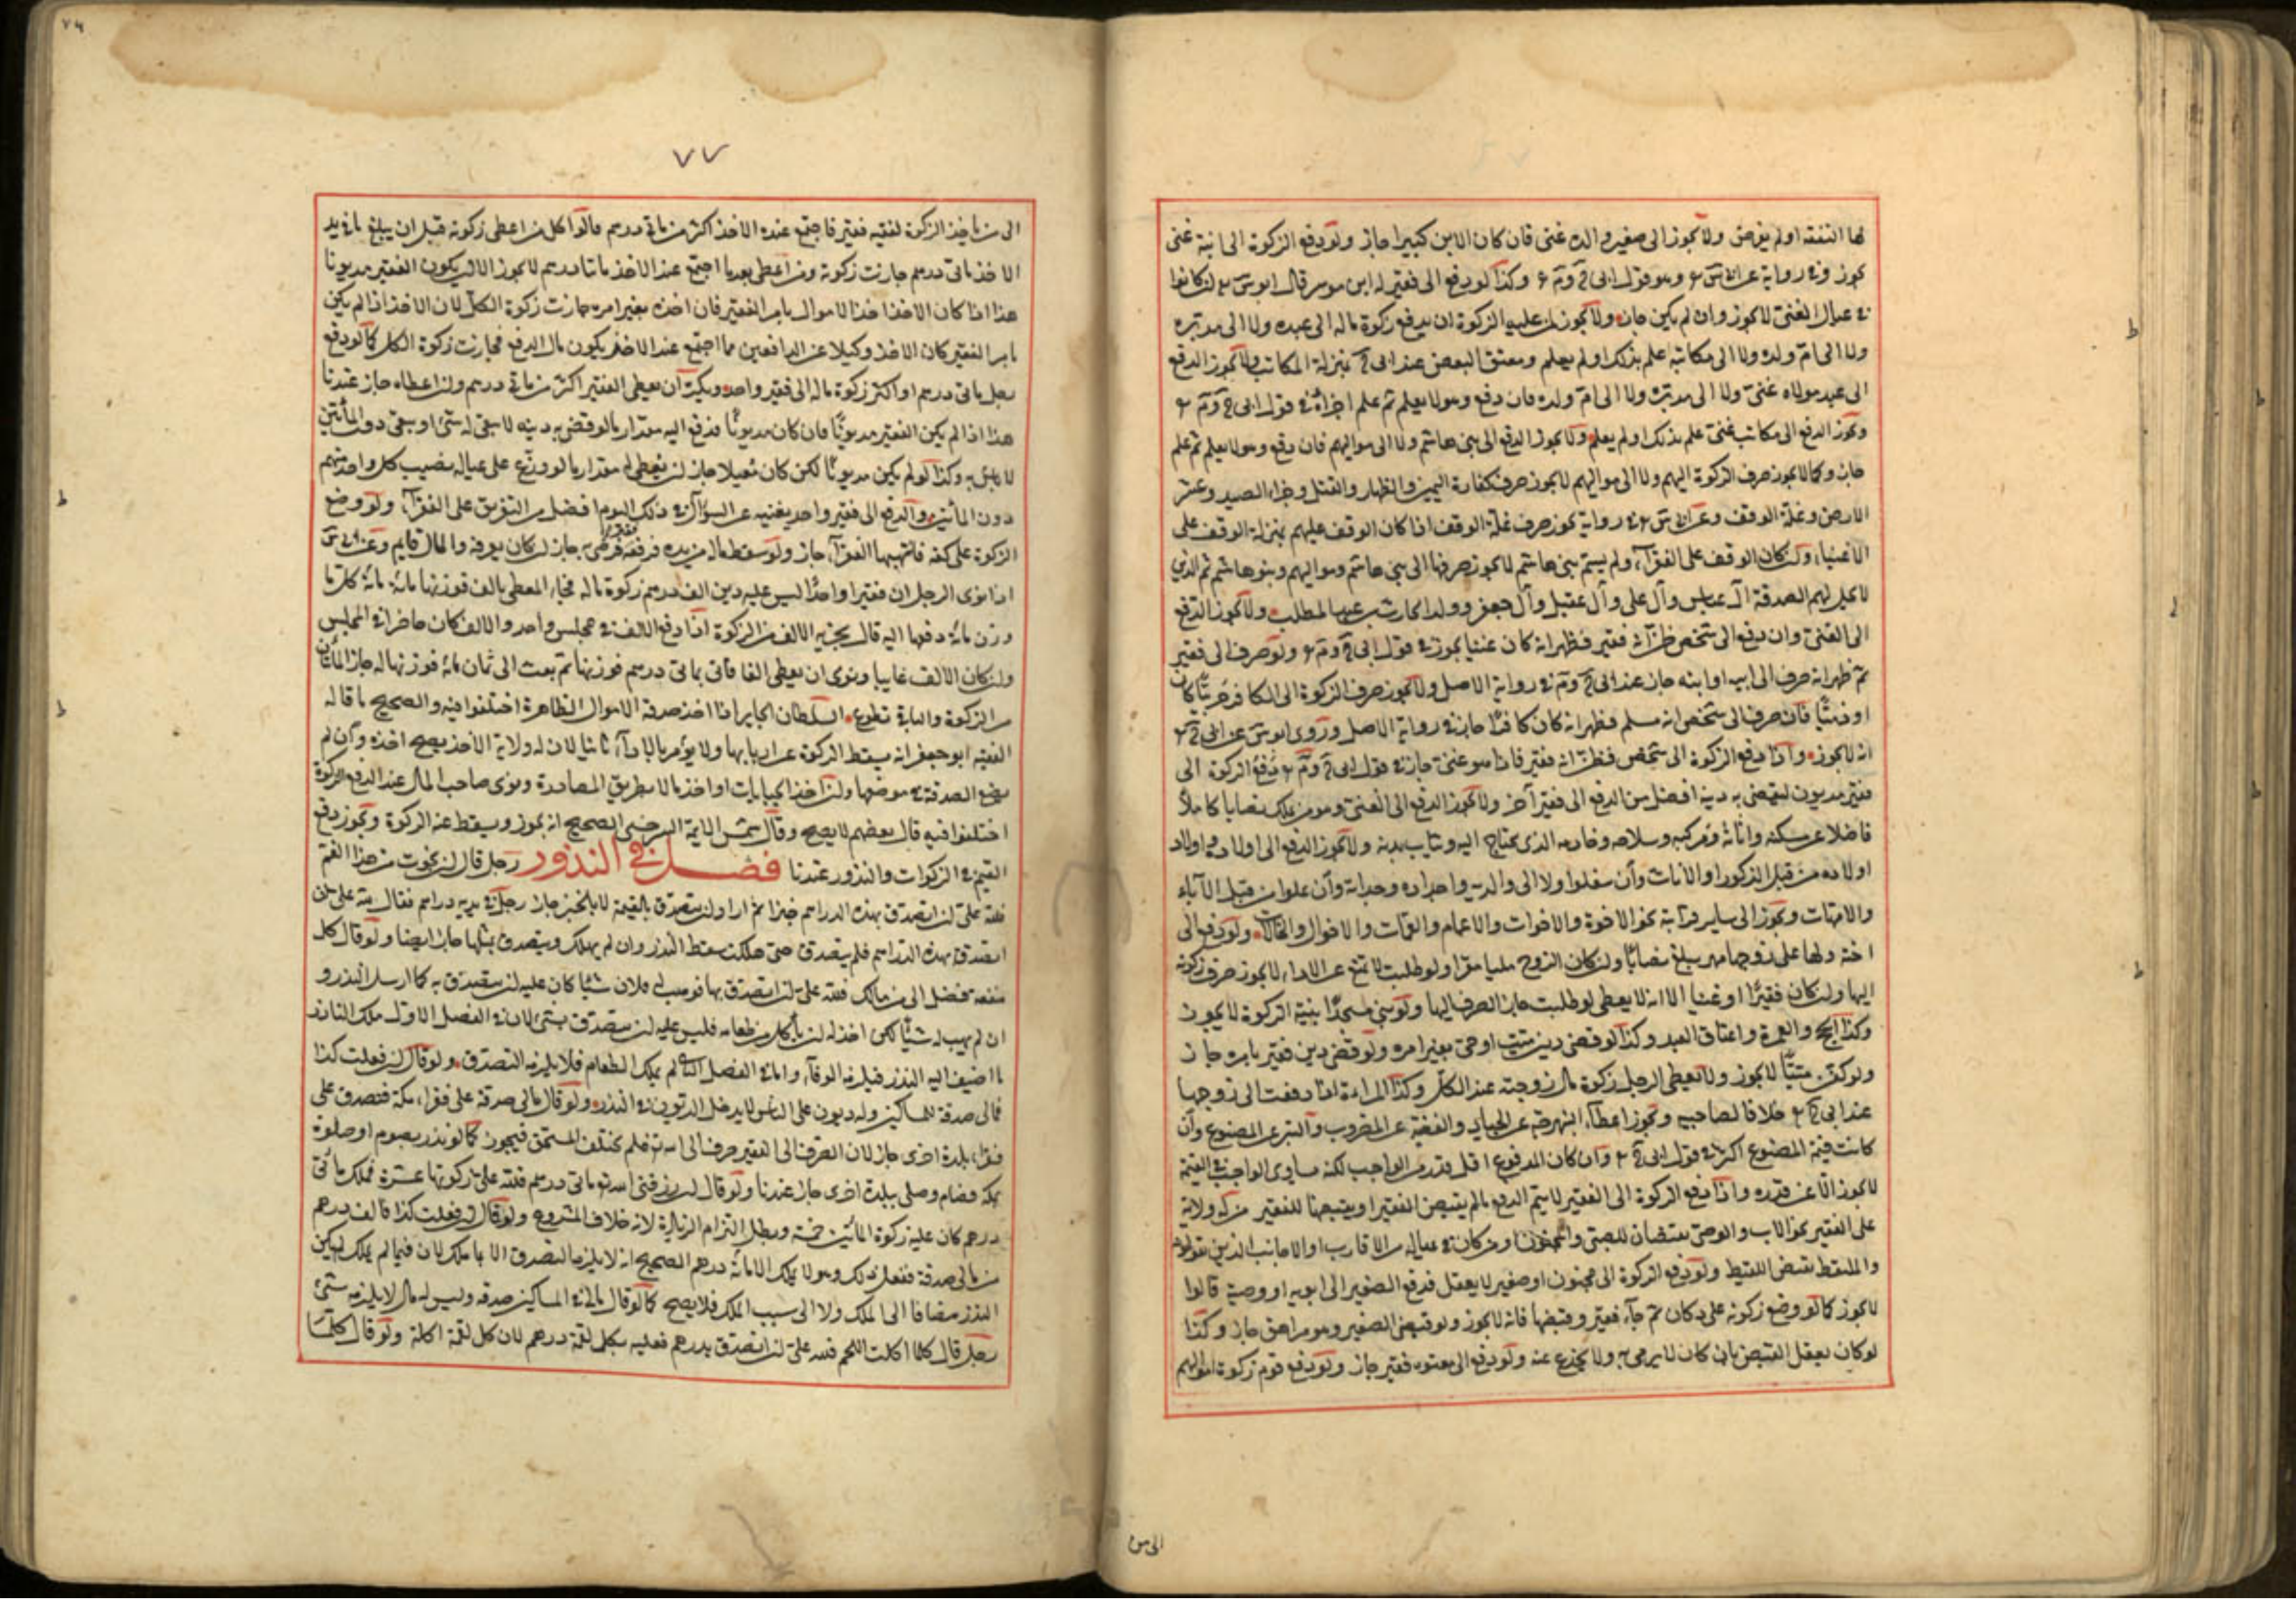 لها النفقة اولم يفرض ولا يجوز الى صغير والده غنى فان كان الابن كبيرا جاز ولو دفع الزكوة الى ابنة غنى
يجوز وفى رواية عن ابى س وهو قول ابى ح وم وكذا لو دفع الى فقير له ابن موسر قال ابو س ان كان
فى عيال الغنى لا يجوز وان لم يكن جاز ولا يجوز لمن عليه الزكوة ان يدفع زكوة ماله الى عبده ولا الى مدبره
ولا الى ام ولده ولا الى مكاتبه علم بذلك اولم يعلم ومعتق البعض عند ابى ح بمنزلة المكاتب ولا يجوز الدفع
الى عبد مولاه غنى ولا الى مدبره ولا الى ام ولده فان دفع وهو لا يعلم ثم علم اجزأه فى قول ابى ح وم
ويجوز الدفع الى مكاتب غنى علم بذلك اولم يعلم ولا يجوز الدفع الى بنى هاشم ولا الى مواليهم فان دفع وهو لا يعلم ثم علم
جاز وكما لا يجوز صرف الزكوة اليهم ولا الى مواليهم لا يجوز صرف كفارة اليمين والظهار والقتل وجزاء الصيد وعشر
الارض وغلة الوقف وعن ابى س فى رواية يجوز صرف غلة الوقف اذا كان الوقف عليهم بمنزلة الوقف على
الاغنياء وان كان الوقف على الفقرآء ولم يسم بنى هاشم لا يجوز صرفها الى بنى هاشم ومواليهم وبنو هاشم هم الذين
لا يحل لهم الصدقة آل عباس وآل على وآل عقيل وآل جعفر وولد الحارث بن عبد المطلب ولا يجوز الدفع
الى الغنى وان دفع الى شخص ظن انه فقير فظهر انه كان غنيا يجوز فى قول ابى ح وم ولو صرف الى فقير
ثم ظهر انه صرف الى ابيه او ابنه جاز عند ابى ح وم فى رواية الاصل ولا يجوز صرف الزكوة الى الكافر حربيا كان
او ذميا فان صرف الى شخص انه مسلم فظهر انه كان كافرا جاز فى رواية الاصل وروى ابو س عن ابى ح
انه لا يجوز واذا دفع الزكوة الى شخص فظن انه فقير فاذا هو غنى جاز فى قول ابى ح وم دفع الزكوة الى
فقير مديون ليقضى به دينه افضل من الدفع الى فقير آخر ولا يجوز الدفع الى الغنى وهو من يملك نصابا كاملا
فاضلا عن مسكنه واثاثه ومركبه وسلاحه وخادمه الذى يحتاج اليه وثياب بدنه ولا يجوز الدفع الى اولاده واولاد
اولاده من قبل الذكور او الاناث وان سفلوا ولا الى والديه واجداده وجداته وان علوا من قبل الآباء
والامهات ويجوز الى ساير قرابته نحو الاخوة والاخوات والاعمام والعمات والاخوال والخالات ولو دفع الى
اخته ولها على زوجها مهر يبلغ نصابا وان كان الزوج مليا مقرا ولو طلبت لا يمتنع عن الاداء لا يجوز صرف زكوته
اليها وان كان فقيرا او غنيا الا انه لا يعطى لو طلبت جاز الصرف اليها ولو بنى مسجدا بنية الزكوة لا يجوز
وكذا الحج والعمرة واعتاق العبد وكذا لو قضى دين ميت او حى بغير امره ولو قضى دين فقير بامره جاز
ولو كفن ميتا لا يجوز ولا يعطى الرجل زكوة مال زوجته عند الكل وكذا المرأة اذا دفعت الى زوجها
عند ابى ح خلافا لصاحبيه ويجوز اعطاء النبهرجة عن الجياد والفضة عن المضروب والتبر عن المصنوع وان
كانت قيمة المصنوع اكثر فى قول ابى ح وان كان المدفوع اقل قدرا من الواجب لكنه يساوى الواجب فى القيمة
لا يجوز الا عن قدره واذا دفع الزكوة الى الفقير لا يتم الدفع مالم يقبض الفقير او يقبضها للفقير من له ولاية
على الفقير نحو الاب والوصى يقبضان للصبى والمجنون او من كان فى عياله من الاقارب او الاجانب الذين يعولونه
والملتقط يقبض للقيط ولو دفع الزكوة الى مجنون او صغير لا يعقل فدفع الصغير الى ابويه او وصيه قالوا
لا يجوز كما لو وضع زكوته على دكان ثم جاء فقير وقبضها فانه لا يجوز ولو قبض الصغير وهو مراهق جاز وكذا
لو كان يعقل القبض بان كان لا يرمى به ولا يخدع عنه ولو دفع الى معتوه فقير جاز ولو دفع قوم زكوة اموالهم
الى من
٧٦
٧٧
الى من يأخذ الزكوة لفقيه فقير فاجتمع عند الاخذ اكثر من ماتى درهم قالوا كل من اعطى زكوته قبل ان يبلغ ما فى يد
الاخذ ماتى درهم جازت زكوته ومن اعطى بعد ما اجتمع عند الاخذ ماتا درهم لا يجوز الا ان يكون الفقير مديونا
هذا اذا كان الاخذ اخذ الاموال بامر الفقير فان اخذه بغير امره جازت زكوة الكل لان الاخذ اذا لم يكن
بامر الفقير كان الاخذ وكيلا عن الدافعين مما اجتمع عند الاخذ يكون مال الدافع فجازت زكوة الكل كما لو دفع
رجل ماتى درهم او اكثر زكوة ماله الى فقير واحد ويكره ان يعطى الفقير اكثر من ماتى درهم وان اعطاه جاز عندنا
هذا اذا لم يكن الفقير مديونا فان كان مديونا فدفع اليه مقدار ما لو قضى به دينه لا يبقى له شئ او يبقى دون المأتين
لا بأس به وكذا لو لم يكن مديونا لكن كان معيلا جاز ان يعطى له مقدار ما لو وزع على عياله يصيب كل واحد منهم
دون المأتين والدفع الى فقير واحد يغنيه عن السؤال فى ذلك اليوم افضل من التفريق على الفقرآء ولو وضع
الزكوة على كفه فانتهبها الفقرآء جاز ولو سقط ماله من يده فرفعه فقير فرضى به جاز ان كان يعرفه والمال قايم وعن ابى س
اذا نوى الرجل ان فقيرا واحدا ليس عليه دين الف درهم زكوة ماله فجاء المعطى بالف فوزنها مائة مائة كلما
وزن مائة دفعها اليه قال يجزيه الالف من الزكوة اذا دفع الالف فى مجلس واحد والالف كان حاضرا فى المجلس
وان كان الالف غايبا ونوى ان يعطى الفا فاتى بماتى درهم فوزنها ثم بعث الى ثمان مائة فوزنها له جاز المأتان
من الزكوة والباقى تطوع السلطان الجاير اذا اخذ صدقة الاموال الظاهرة اختلفوا فيه والصحيح ما قاله
الفقيه ابو جعفر انه يسقط الزكوة عن اربابها ولا يؤمر بالادآء ثانيا لان له ولاية الاخذ يصح اخذه وان لم
يضع الصدقة فى موضعها وان اخذ الجبايات او اخذ مالا بطريق المصادرة ونوى صاحب المال عند الدفع الزكوة
اختلفوا فيه قال بعضهم لا يصح وقال شمس الايمة السرخسى الصحيح انه يجوز ويسقط عنه الزكوة ويجوز دفع
القيم فى الزكوات والنذور عندنا فصل فى النذور رجل قال ان نجوت من هذا الغم
فلله على ان اتصدق بهذه الدراهم خبزا فاراد ان يتصدق بالقيمة لا بالخبز جاز رجل فى يديه دراهم فقال لله على ان
اتصدق بهذه الدراهم فلم يتصدق حتى هلكت سقط النذر وان لم يهلك ويتصدق بمثلها جاز ايضا ولو قال كل
منفعة تصل الى من مالك فلله على ان اتصدق بها فوهب له فلان شيئا كان عليه ان يتصدق به كما ارسل النذر و
ان لم يهب له شيئا لكن اذن له ان يأكل من طعامه فليس عليه ان يتصدق بشئ لان فى الفصل الاول ملك المال
ما اضيف اليه النذر فيلزمه الوفآء واما فى الفصل الثانى لم يملك الطعام فلا يلزمه التصدق ولو قال ان فعلت كذا
فمالى صدقة للمساكين وله ديون على الناس لا يدخل الديون فى النذر ولو قال مالى صدقة على فقراء مكة فتصدق على
فقراء بلدة اخرى جاز لان الصرف الى الفقير صرف الى الله فلم يختلف المستحق فيجوز كما لو نذر بصوم او صلوة
بمكة فصام وصلى ببلدة اخرى جاز عندنا ولو قال ان رزقنى الله ماتى درهم فلله على زكوتها عشرة فملك مأتى
درهم كان عليه زكوة المأتين خمسة وبطل التزام الزيادة لانه خلاف المشروع ولو قال ان فعلت كذا فالف درهم
من مالى صدقة ففعل ذلك وهو لا يملك الا مائة درهم الصحيح انه لا يلزمه التصدق الا بما ملك لان فيما لم يملك لم يكن
النذر مضافا الى الملك ولا الى سبب الملك فلا يصح كما لو قال مالى فى المساكين صدقة وليس له مال لا يلزمه شئ
رجل قال كلما اكلت اللحم فلله على ان اتصدق بدرهم فعليه بكل لقمة درهم لان كل لقمة اكلة ولو قال كلما